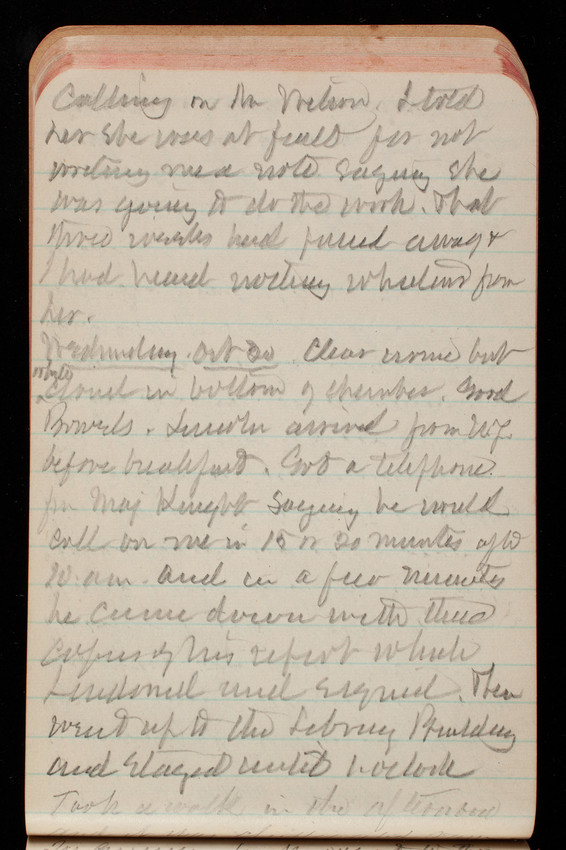 Calling on Mr Nelson. I told
her she was at fault for not
writing me a note saying she
was going to do the work. That
three weeks had passed away &
I had heard nothing whatever from
her.
Wednesday. Oct 20. Clear urine but
white
cloud in bottom of chamber. Good
Bowels. Lincoln arrived from NY.
before breakfast. Got a telephone
from Maj Knight saying he would
call on me in 15 or 20 minutes after
10 am. and in a few minutes
he came down with three
copies of his report which
I endorsed and signed. Then
went up to the Library Building
and stayed until 1 oclock
Took a walk in the afternoon